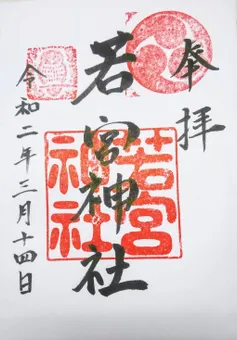 奉拝
若宮神社
令和二年三月十四日
若宮
神社